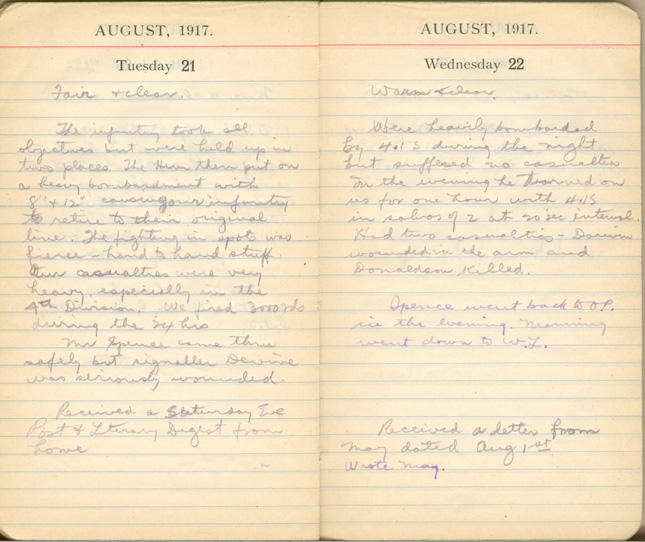 AUGUST, 1917.
Tuesday 21
Fair & clear.
The infantry took all
objectives but were held up in
two places. The Hun then put on
a heavy bombardment with
8" & 12" causing our infantry
to retire to their original
line. The fighting in spots was
fierce - hand to hand stuff.
Our casualties were very
heavy, especially in the
4th Division. We fired 3000 rds
during the 24 hrs
Mr Spence came thru
safely but signaller Devine
was seriously wounded.
Received a Saturday Eve
Post & Literary Digest from
home
AUGUST, 1917.
Wednesday 22
Warm & clear.
Were heavily bombarded
by 4.1s during the night
but suffered no casualties
In the evening he turned on
us for one hour with 4.1s
in salvos of 2 at 20 sec interval.
Had two casualties -
wounded in the arm and
Donaldson killed.
Spence went back to O.P.
in the evening. Manning
went down to W.L.
Received a letter from
May dated Aug 1st
Wrote May.